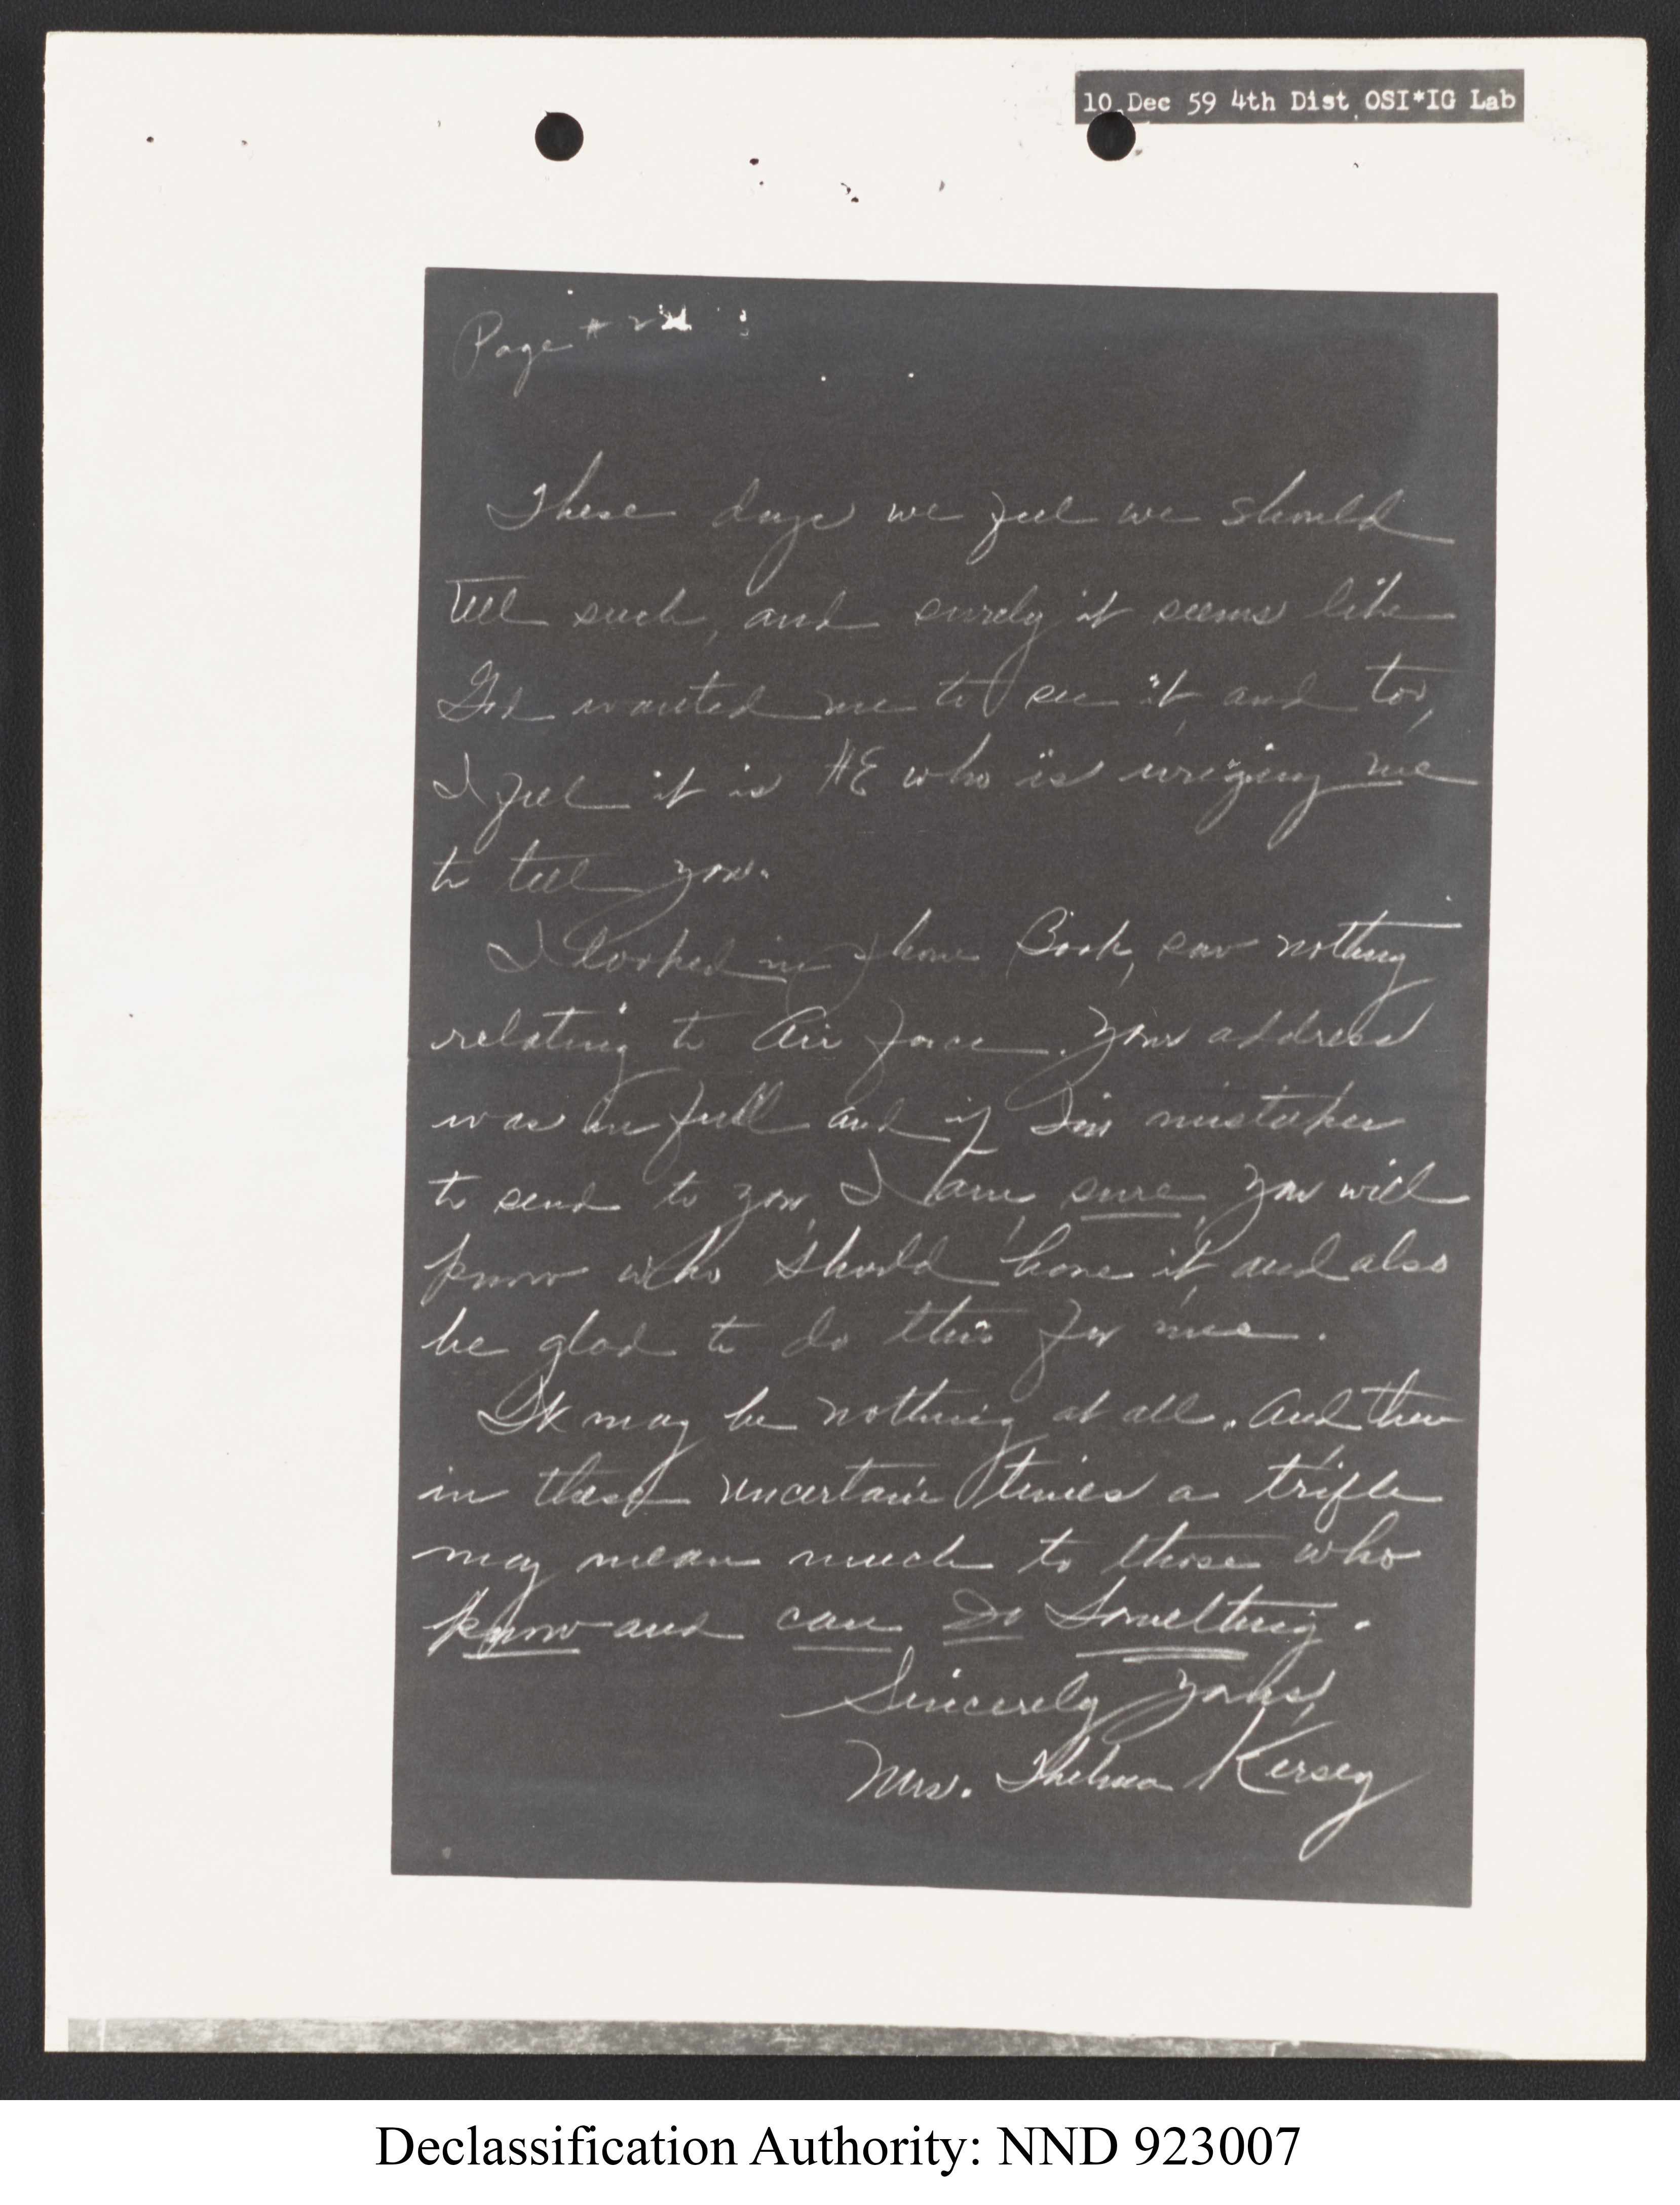 10 Dec 59 4th Dist OSI*IG Lab
Page # 2
These days we feel we should
Tell such, and surely it seems like
God wanted me to see it, and too,
I feel it is HE who is urging me
to tell you.
I looked in phone Book, saw nothing
relating to Air force. Your address
was in full and if I'm mistaken
to send to you, I am, sure, you will
know who should have it, and also
be glad to do this for me.
It may be nothing at all. And then
in these uncertain times a trifle
may mean much to those who
know and can Do Something.
Sincerely yours,
Mrs. Thelma Kersey
Declassification Authority: NND 923007